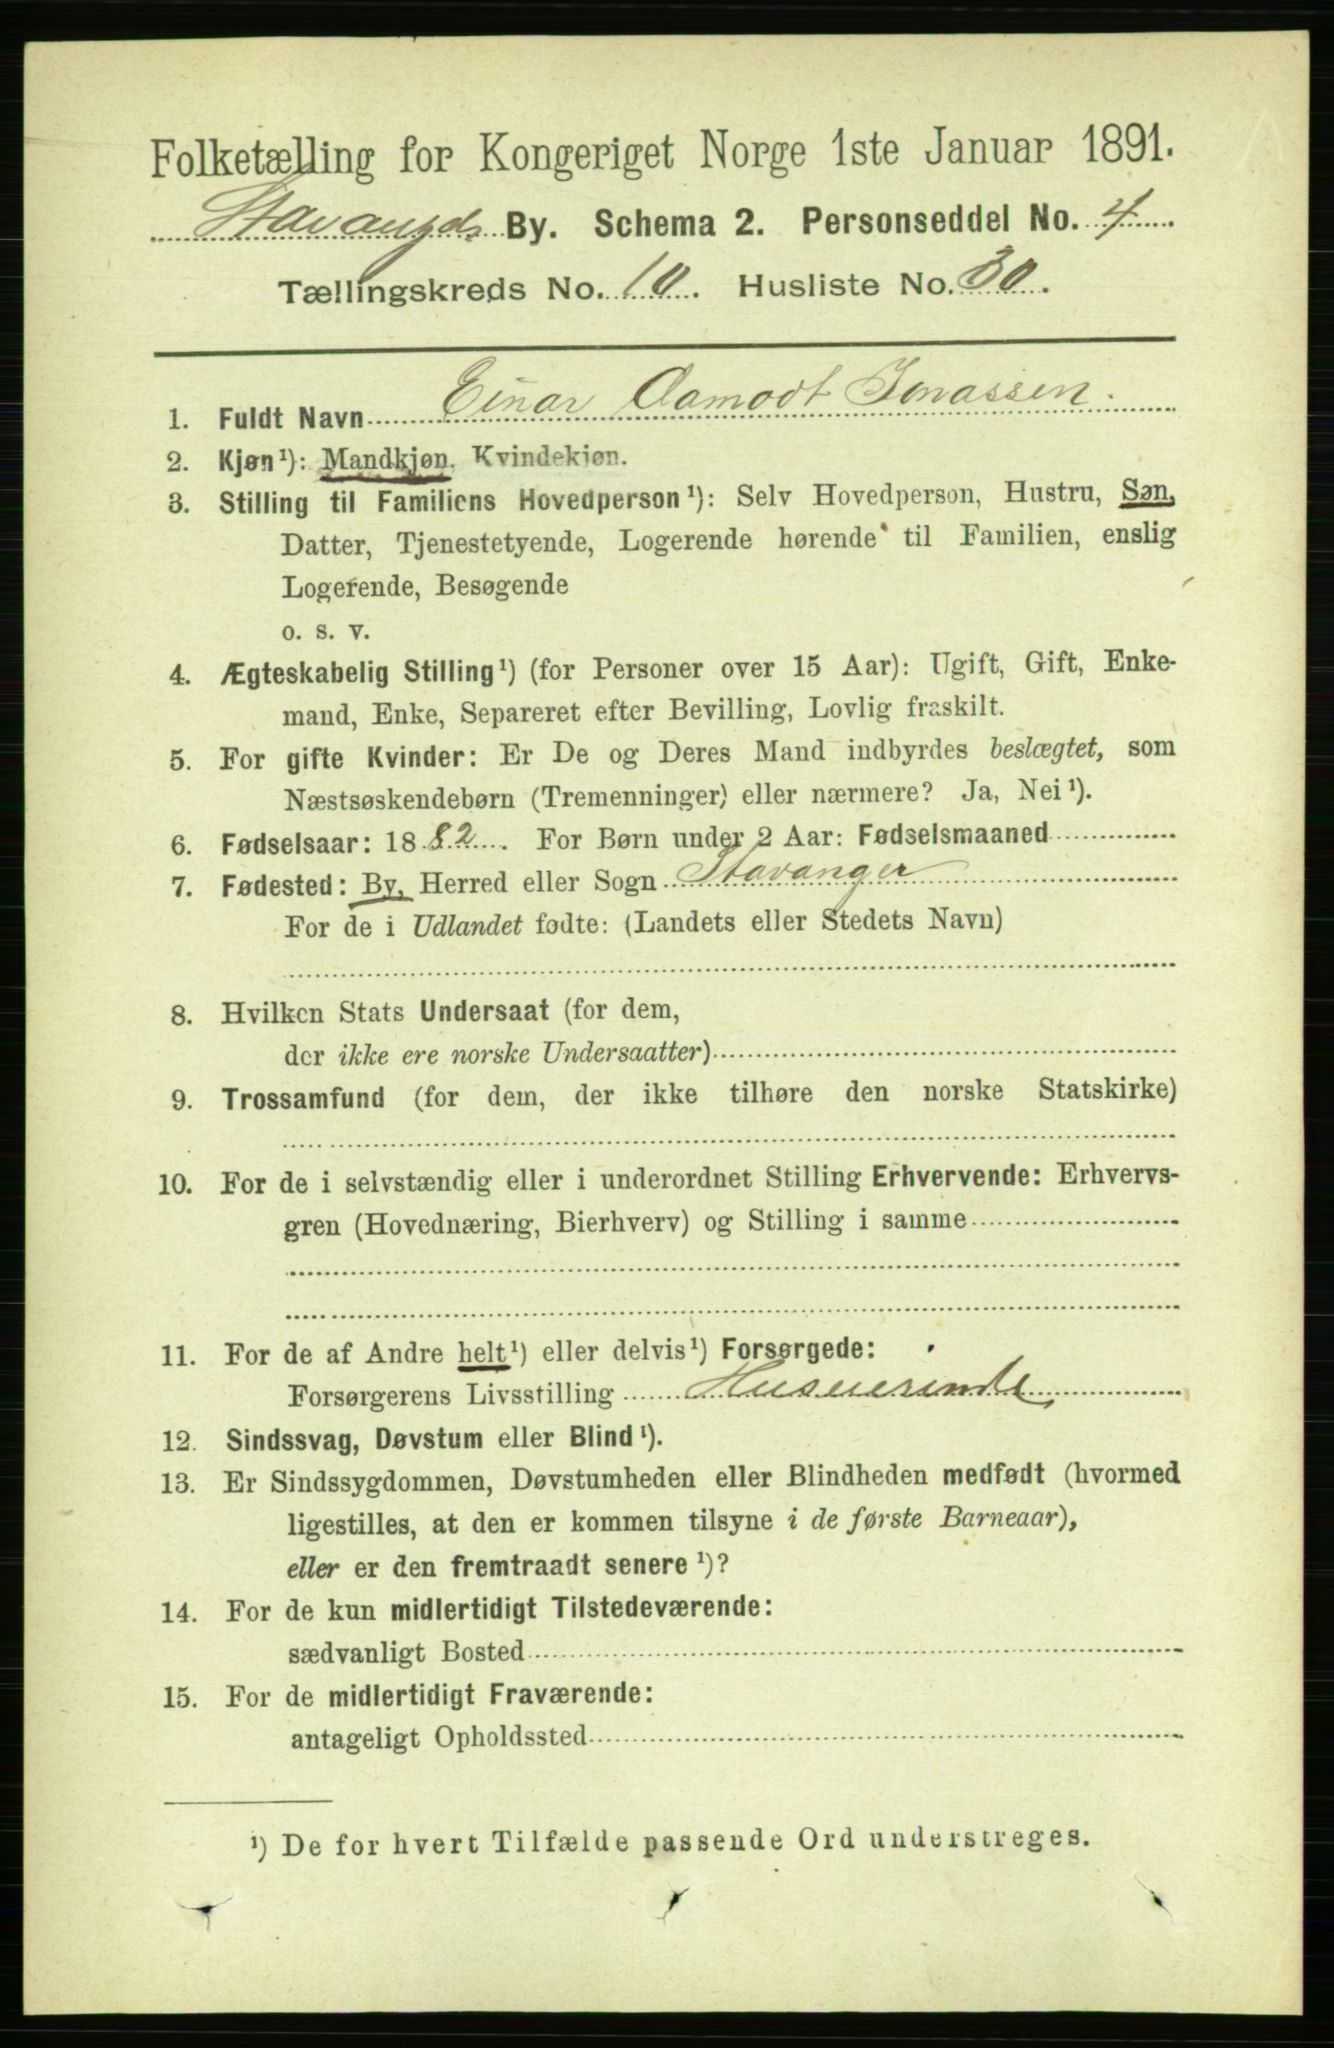 Folketælling for Kongeriget Norge 1ste Januar 1891.
Stavanger By. Schema 2. Personseddel No. 4
Tællingskreds No. 10. Husliste No. 30.
1. Fuldt Navn Einar Aamodt Jonassen.
2. Kjøn¹): Mandkjøn. Kvindekjøn.
3. Stilling til Familiens Hovedperson¹): Selv Hovedperson, Hustru, Søn,
Datter, Tjenestetyende, Logerende hørende til Familien, enslig
Logerende, Besøgende
o. s. v.
4. Ægteskabelig Stilling¹) (for Personer over 15 Aar): Ugift, Gift, Enke-
mand, Enke, Separeret efter Bevilling, Lovlig fraskilt.
5. For gifte Kvinder: Er De og Deres Mand indbyrdes beslægtet, som
Næstsøskendebørn (Tremenninger) eller nærmere? Ja, Nei¹).
6. Fødselsaar: 1882. For Børn under 2 Aar: Fødselsmaaned
7. Fødested: By, Herred eller Sogn Stavanger
For de i Udlandet fødte: (Landets eller Stedets Navn)
8. Hvilken Stats Undersaat (for dem,
der ikke ere norske Undersaatter)
9. Trossamfund (for dem, der ikke tilhøre den norske Statskirke)
10. For de i selvstændig eller i underordnet Stilling Erhvervende: Erhvervs-
gren (Hovednæring, Bierhverv) og Stilling i samme
11. For de af Andre helt¹) eller delvis¹) Forsørgede:
Forsørgerens Livsstilling
12. Sindssvag, Døvstum eller Blind¹).
13. Er Sindssygdommen, Døvstumheden eller Blindheden medfødt (hvormed
ligestilles, at den er kommen tilsyne i de første Barneaar),
eller er den fremtraadt senere¹)?
14. For de kun midlertidigt Tilstedeværende:
sædvanligt Bosted
15. For de midlertidigt Fraværende:
antageligt Opholdssted
¹) De for hvert Tilfælde passende Ord understreges.